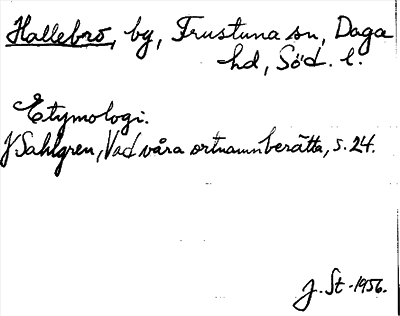 Hallebro, by, Frustuna sn, Daga
hd, Söd. l.
Etymologi.
J Sahlgren, Vad våra ortnamn berätta, s. 24.
J. St. 1956.